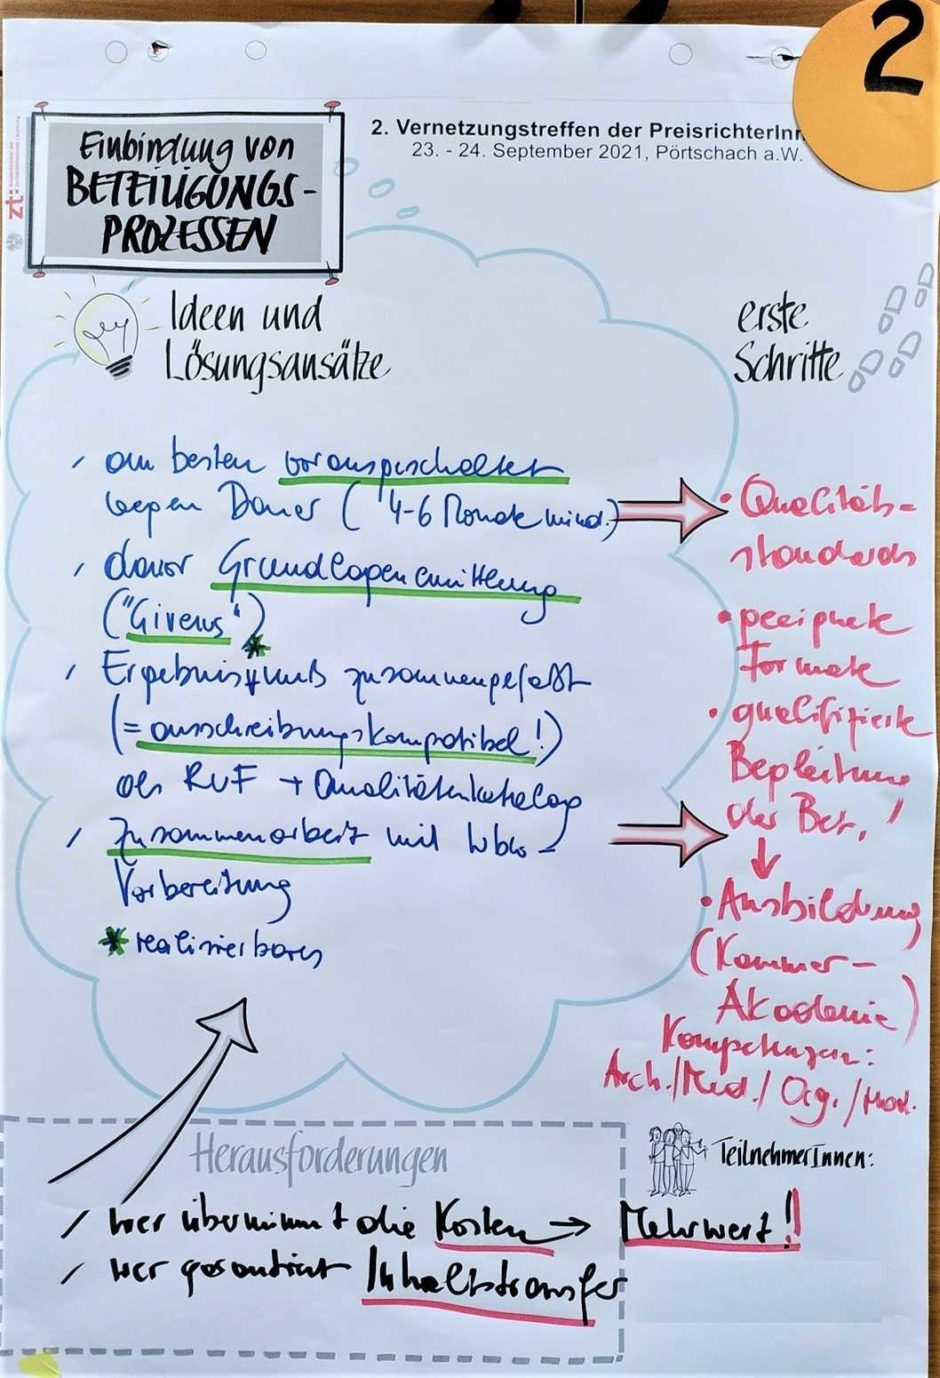 2
2. Vernetzungstreffen der PreisrichterInn
23. - 24. September 2021, Pörtschach a.W.
zt:
Einbindung von
BETEILIGUNGS-
PROZESSEN
Ideen und
Lösungsansätze
am besten vorausgeschaltet
wegen Dauer (4-6 Monate mind.)
davor Grundlagenermittlung
("Givens") *
Ergebnis muß zusammengefaßt
(= ausschreibungskompatibel!)
als RVF + Qualitätenkatalog
Zusammenarbeit mit Wbw-
Vorbereitung
* realisierbares
erste
Schritte
• Qualitäts-
standards
• geeignete
Formate
• qualifizierte
Begleitung
der Bet.!
↓
• Ausbildung
(Kammer-
Akademie)
Kompetenzen:
Arch./Med./Org./Mod.
Herausforderungen
/ wer übernimmt die Kosten → Mehrwert!!
/ wer garantiert Inhaltstransfer
TeilnehmerInnen: